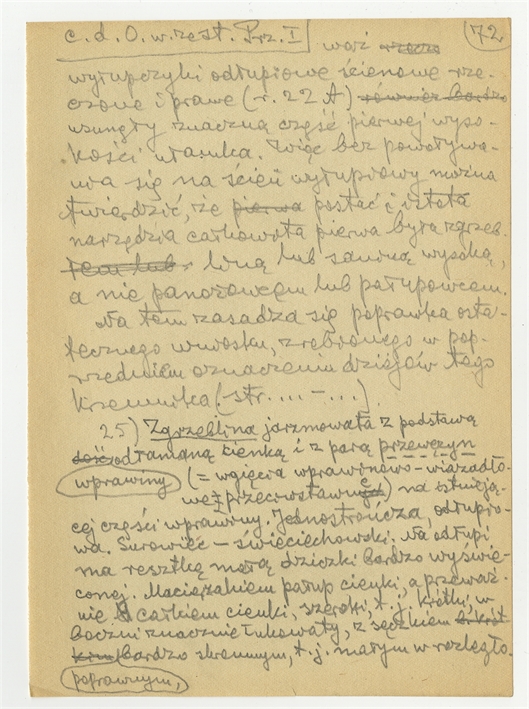 c. d. O. w. zest. Prz. I wąż rzecz (72
wyłupczyki odłupiowe ścienowe rze-
czowe i prawe (r. 22 A) również bardzo
usunęły znaczną część pierwej wyso-
kości ułamka. Więc bez powoływa-
nia się na ścień wyłupiowy można
twierdzić, że pierwa postać i istota
narzędzia całkowita pierwa była zgrzeb-
tem lub liną lub saniną wysoką,
a nie panorowcem lub półtupowcem.
Na tem zasadza się poprawka osta-
tecznego wniosku, zrobionego w pop-
rzedniem oznaczeniu dziejów tego
krzemika (str. ... – ...).
25) Zgrzeblina jarzmowata z podstawą
dość odłamaną cienką i z parą przewężyn
wprawiny (= wgięcia wprawinowo-wiązadło-
we przeciwstawnych) na istnieją-
cej części wprawiny. Jednostrończa, odłupio-
wa. Surowiec – święciechowski. Na odłupi
ma resztkę małą dziczki bardzo wyświe-
conej. Maciązakiem półłup cienki, a przeważ-
nie całkiem cienki, szeroki, t. j. krótki, w
boczni znacznie łukowaty, z sęczkiem
bardzo skromnym, t. j. małym w rozległo-
poprawnym,